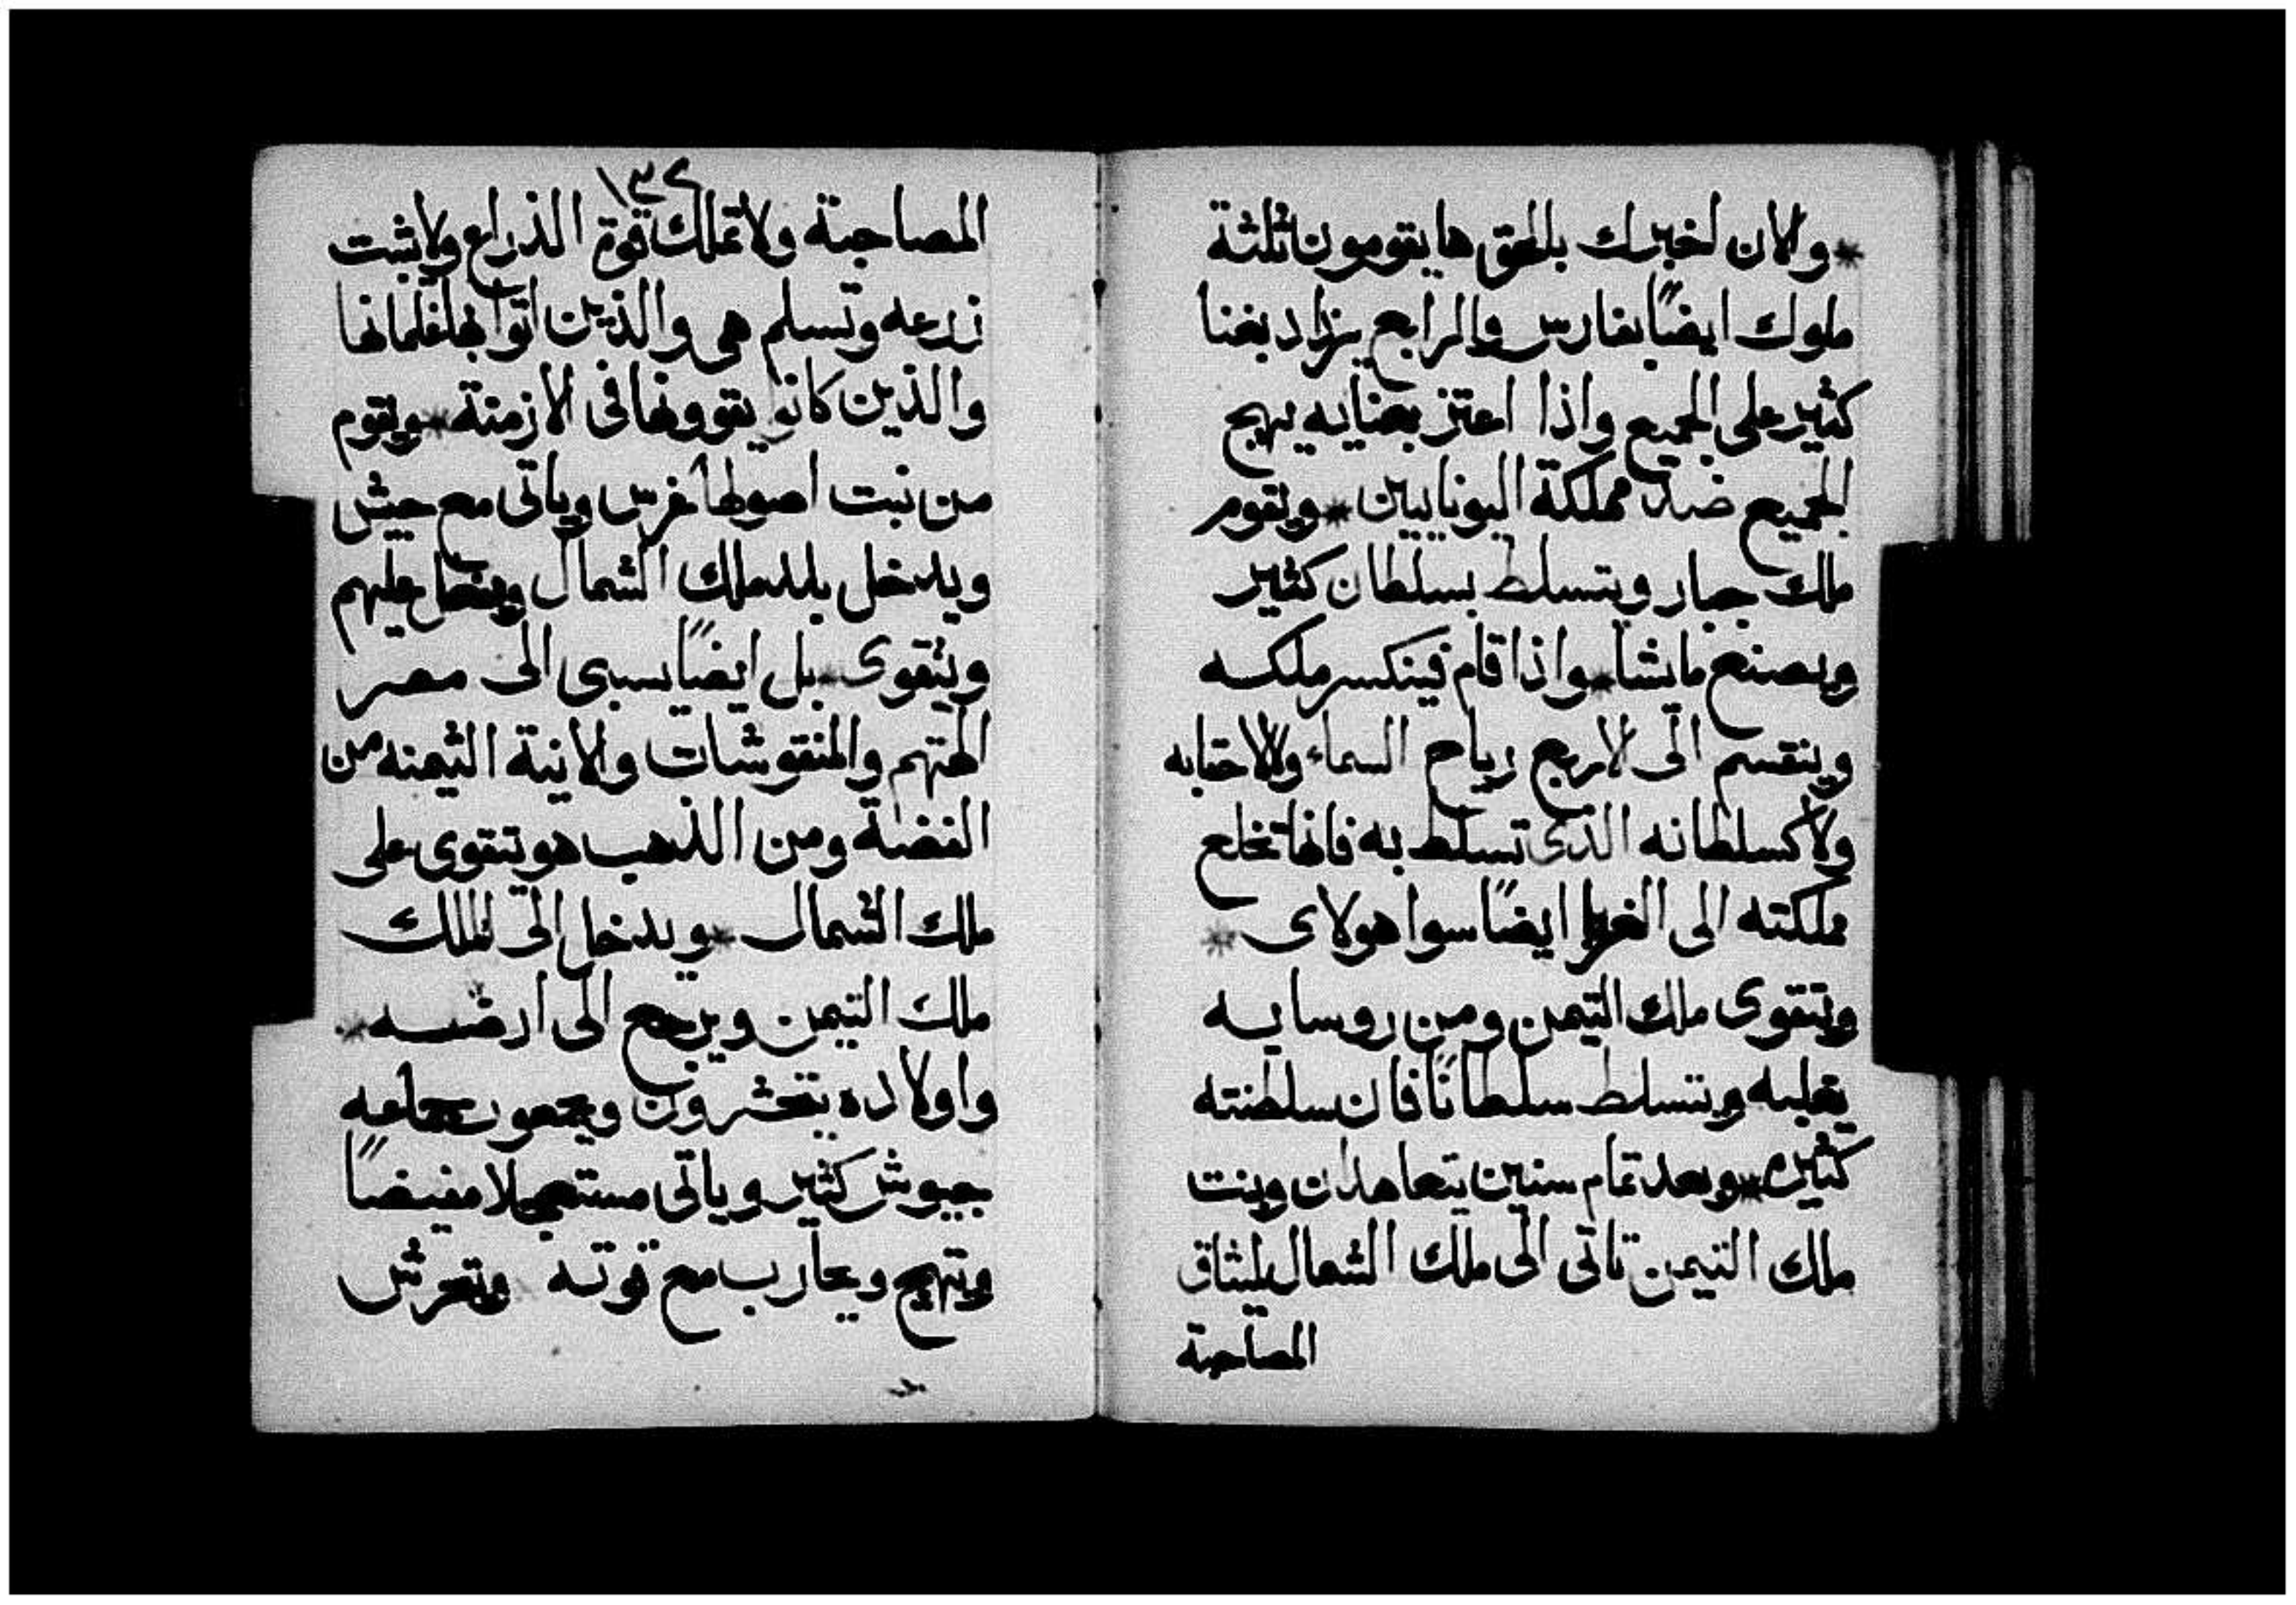 * والان اخبرك بالحق ها يقومون ثلثة
ملوك ايضًا بفارس والرابع يزاد بغنا
كثير على الجميع واذا اعتز بغنايه يهيج
الجميع ضد مملكة اليونايين * ويقوم
ملك جبار ويتسلط بسلطان كثير
ويصنع مايشا * واذا قام فينكسر ملكه
وينقسم الى لاربع رياح السماء ولالاحقابه
ولاكسلطانه الذى تسلط به فانها تخلع
مملكته الى الغربا ايضًا سوا هولاى *
ويتقوى ملك التيمن ومن روسايه
يغلبه ويتسلط سلطانًا فان سلطنته
كثيره * وبعد تمام سنين يتعاهدان وبنت
ملك التيمن تاتى الى ملك الشمال ليثاق
المصاحبة
١٣٢
المصاحبة ولا تملك قوة الذراع ولا يثبت
زرعه وتسلم هى والذين اتوا بها غلمانها
والذين كانوا يقوونها فى الازمنة * ويقوم
من نبت اصولها غرس وياتى مع جيش
ويدخل بلد ملك الشمال ويفعل عليهم
ويتقوى * بل ايضًا يسبى الى مصر
الهتهم والمنقوشات والانية الثمينه من
الفضة ومن الذهب هو يتقوى على
ملك الشمال * ويدخل الى الملك
ملك التيمن ويرجع الى ارضه *
واولاده يتحثرون ويجمعون جماعه
جيوش كثير وياتى مستعجلا مفيضًا
ويتهيج ويحارب مع قوته ويتحرش